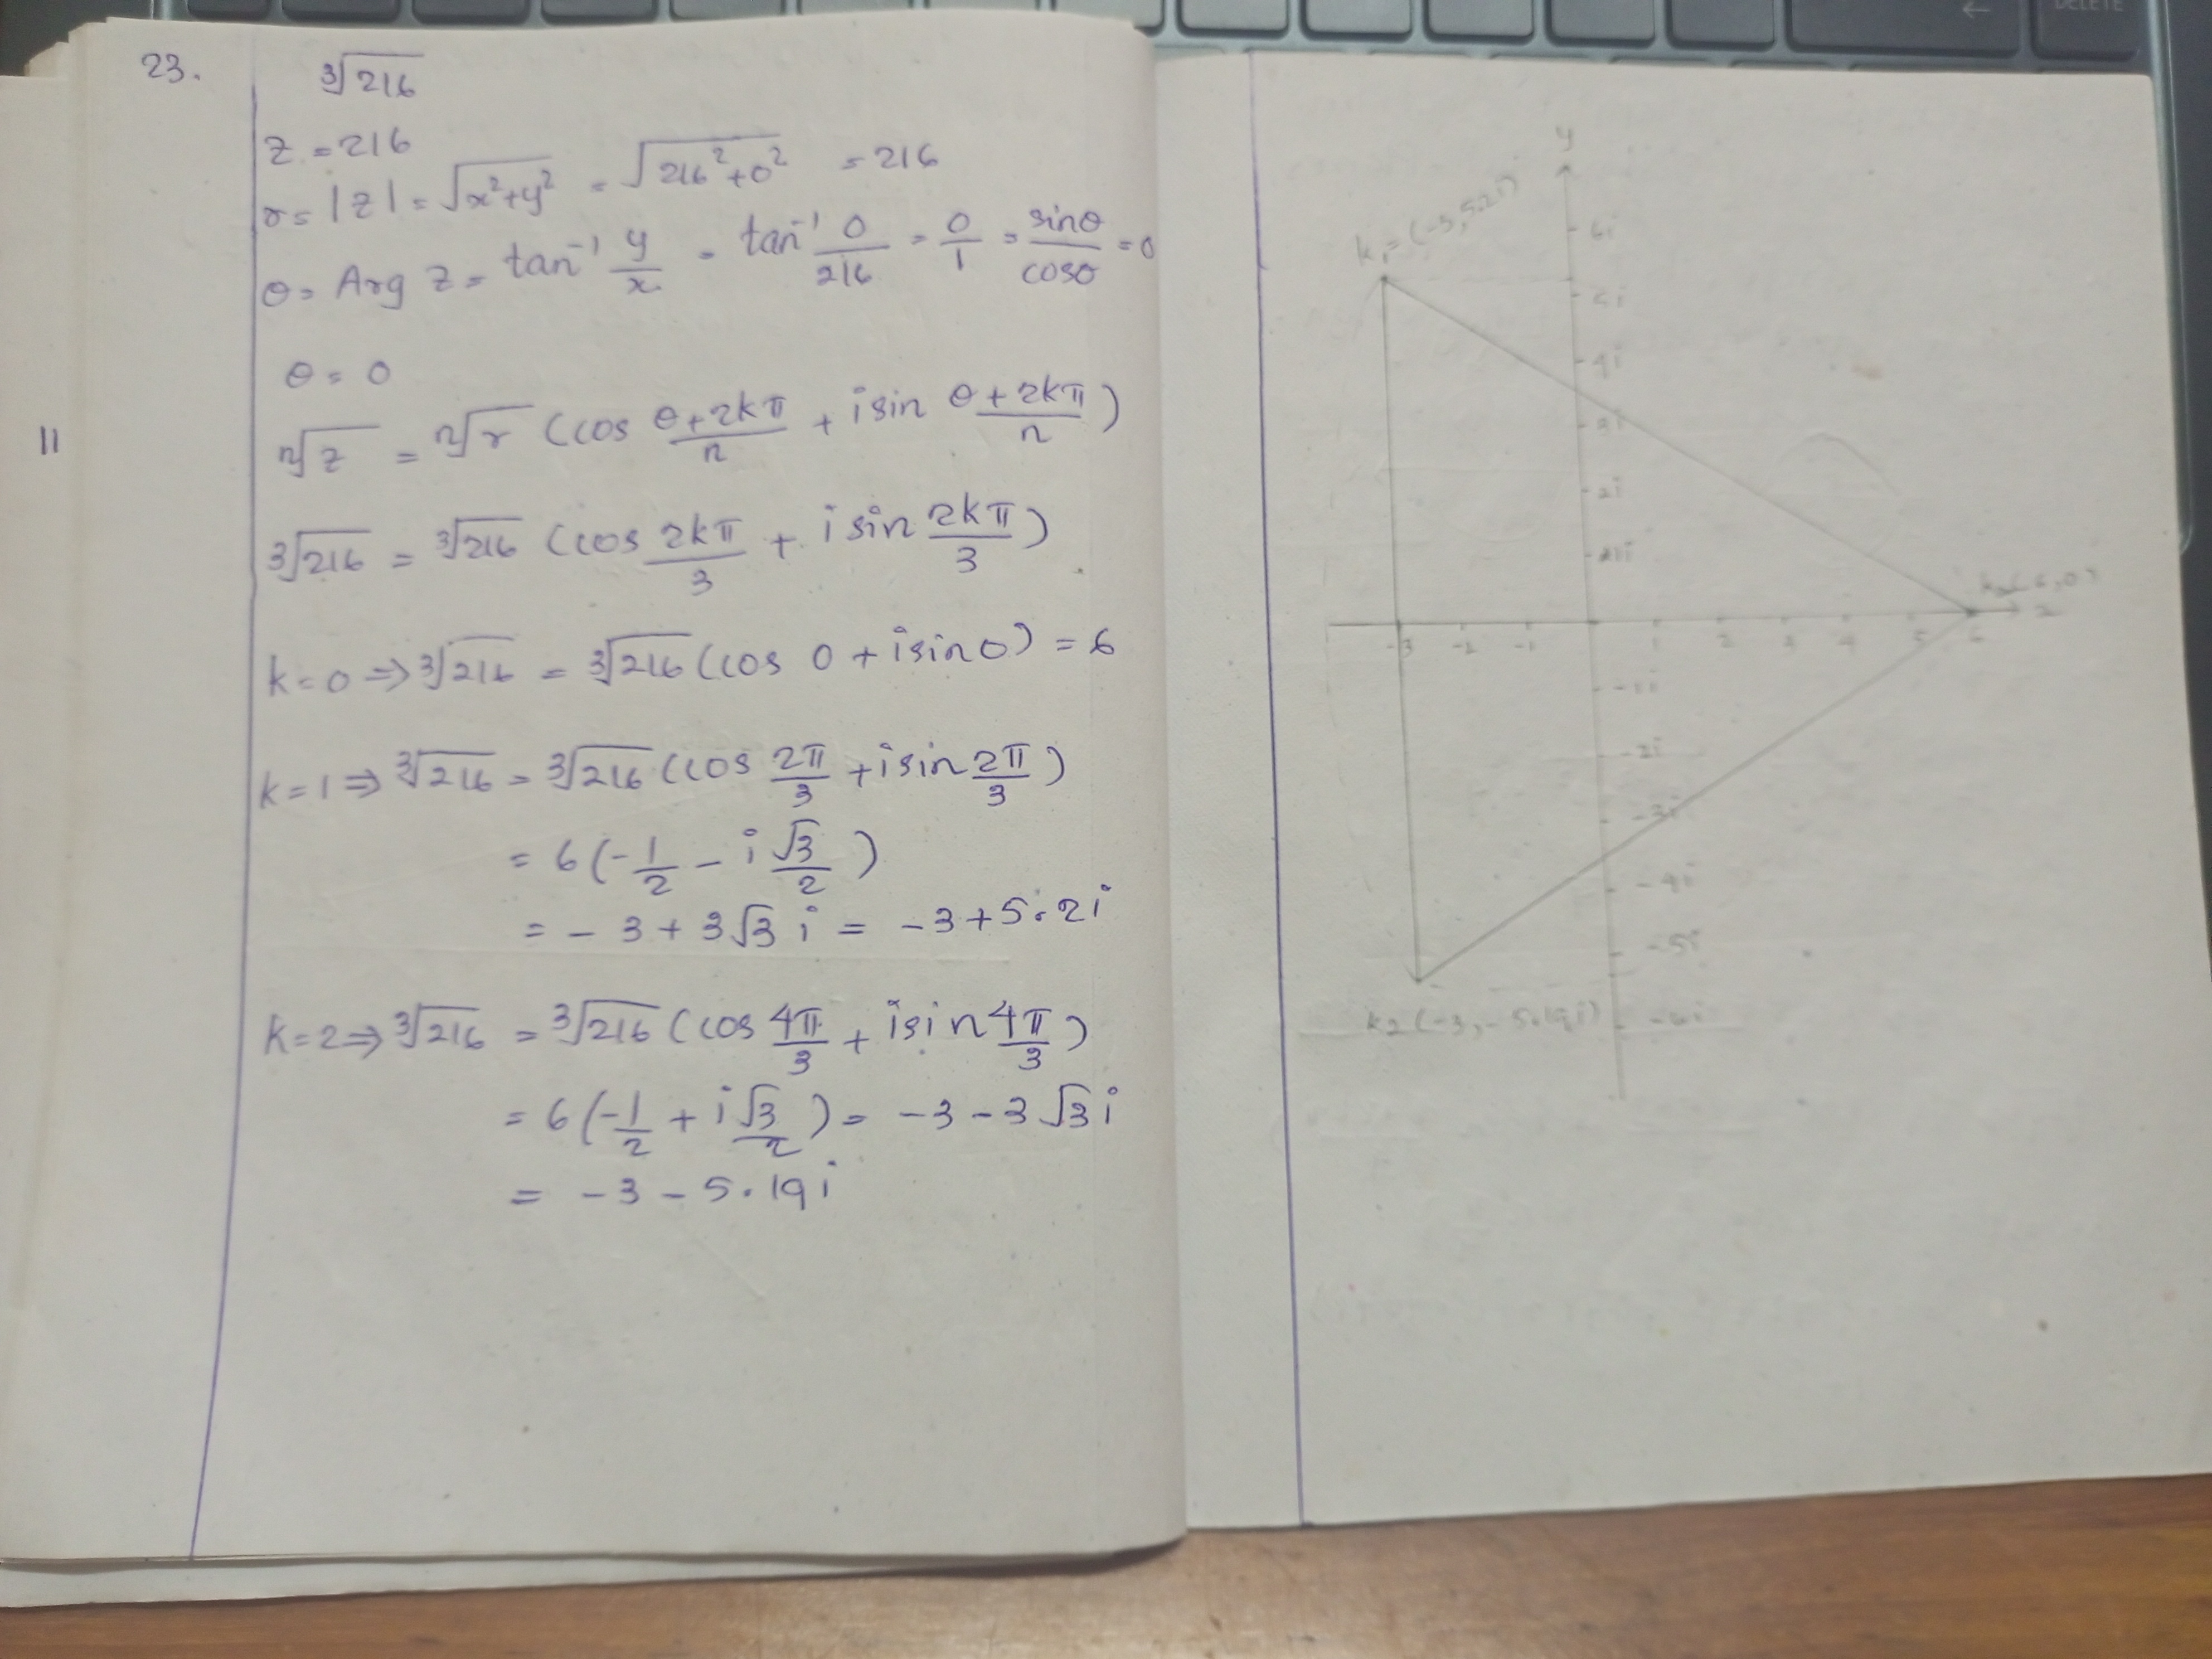 23.
∛216
z = 216
r = |z| = √(x²+y²) = √(216²+0²) = 216
θ = Arg z = tan⁻¹ y/x = tan⁻¹ 0/216 = 0/1 = sinθ/cosθ = 0
θ = 0
11
ⁿ√z = ⁿ√r (cos (θ+2kπ)/n + i sin (θ+2kπ)/n)
∛216 = ∛216 (cos 2kπ/3 + i sin 2kπ/3)
k=0 ⇒ ∛216 = ∛216 (cos 0 + i sin 0) = 6
k=1 ⇒ ∛216 = ∛216 (cos 2π/3 + i sin 2π/3)
= 6(-1/2 - i √3/2)
= -3 + 3√3 i = -3+5.2i
k=2 ⇒ ∛216 = ∛216 (cos 4π/3 + i sin 4π/3)
= 6(-1/2 + i √3/2) = -3 - 3√3 i
= -3 - 5.19i
DELETE
y
k₁=(-3,5.2i)
6i
4i
2i
x
-3 -2 -1 1 2 3 4 5 6
-1i
-2i
-3i
-4i
-5i
k2(-3,-5.19i)
-6i